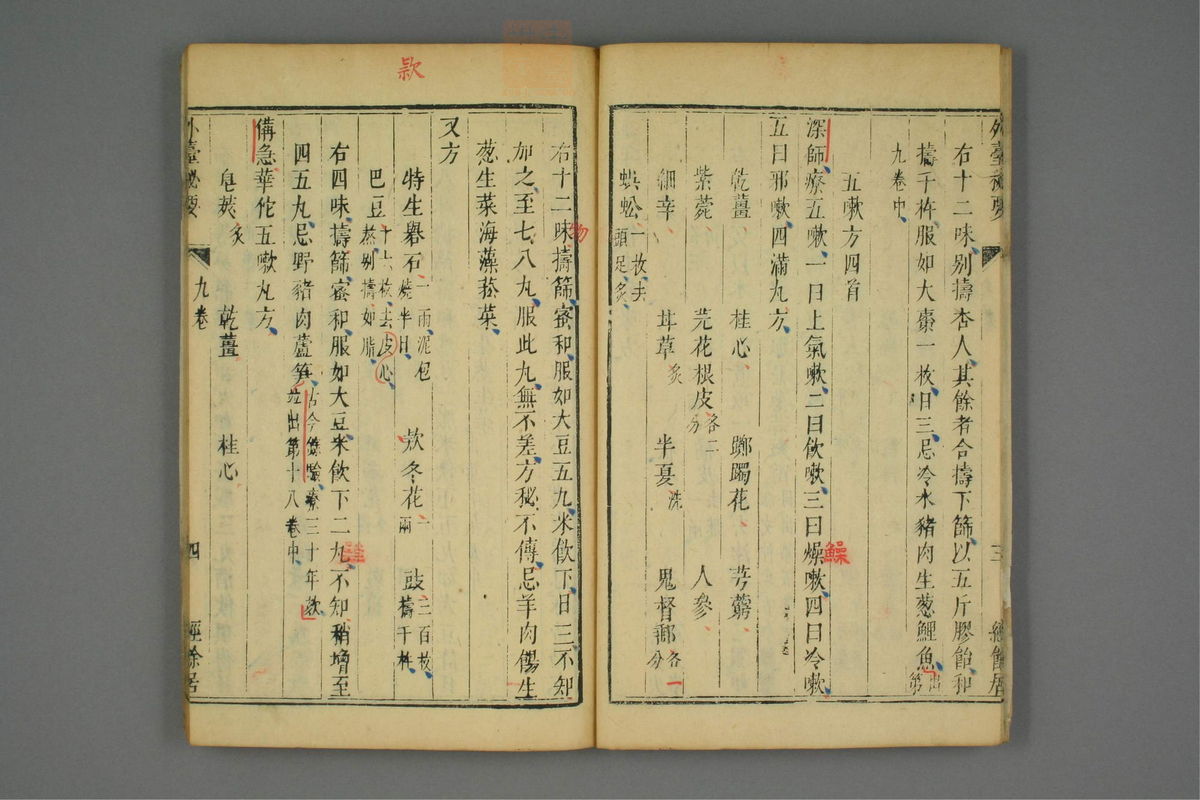 右十二味別擣杏人其餘者合擣下篩以五斤膠飴和
擣千杵服如大棗一枚日三忌冷水豬肉生葱鯉魚出第
九卷中
五嗽方四首
深師療五嗽一曰上氣嗽二曰飲嗽三曰燥嗽四曰冷嗽
五曰邪嗽四滿丸方
乾薑 桂心 躑躅花 芎藭
紫菀 芫花根皮各二分 人參
細辛 甘草炙 半夏洗 鬼督郵各一分
蜈蚣一枚去頭足炙
外臺祕要 三 經餘居
右十二味擣篩蜜和服如大豆五丸米飲下日三不知
加之至七八丸服此丸無不差方秘不傳忌羊肉餳生
葱生菜海藻菘菜
又方
特生礜石一兩泥包燒半日 欵冬花一兩 豉三百枚擣千杵
巴豆十六枚去皮心熬別擣如脂
右四味擣篩蜜和服如大豆米飲下二丸不知稍增至
四五丸忌野豬肉蘆笋古今錄驗療三十年欬並出第十八卷中
備急華佗五嗽丸方
皂莢炙 乾薑 桂心
外臺祕要 九卷 四 經餘居
欵
燥